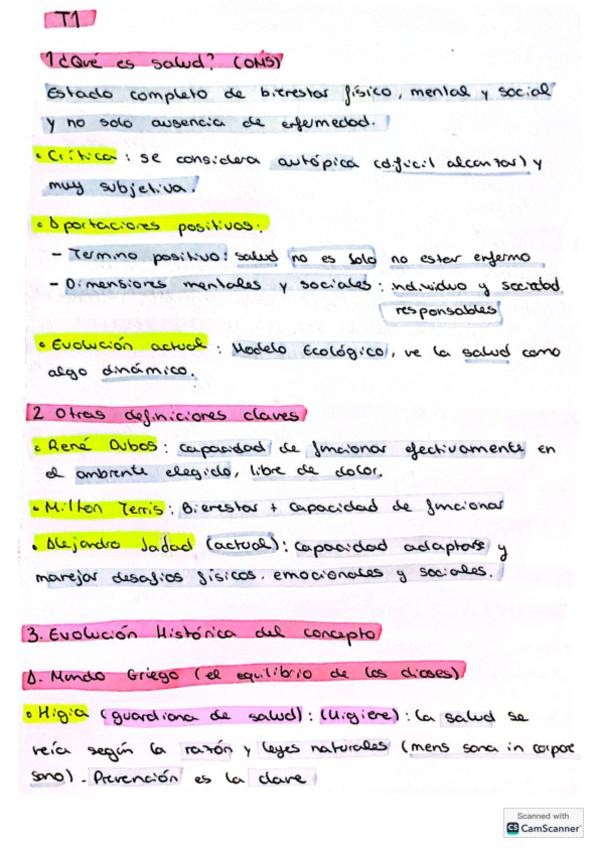 T1
1 ¿Qué es salud? (OMS)
Estado completo de bienestar físico, mental y social
y no solo ausencia de enfermedad.
• Crítica: se considera autópica (dificil alcanzar) y
muy subjetiva.
• Aportaciones positivas:
- Termino positivo: salud no es solo no estar enfermo
- Dimensiones mentales y sociales: individuo y sociedad
responsables
• Evolución actual: Modelo Ecológico, ve la salud como
algo dinámico.
2 Otras definiciones claves
• René Dubos: capacidad de funcionar efectivamente en
el ambiente elegido, libre de dolor.
• Milton Terris: Bienestar + capacidad de funcionar
• Alejandro Jadad (actual): capacidad adaptarse y
manejar desafios físicos, emocionales y sociales.
3. Evolución Histórica del concepto
A. Mundo Griego (el equilibrio de los dioses)
• Higia (guardiana de salud): (Higiene): la salud se
veía según la razón y leyes naturales (mens sana in corpore
sano). Prevención es la clave
Scanned with
CS CamScanner